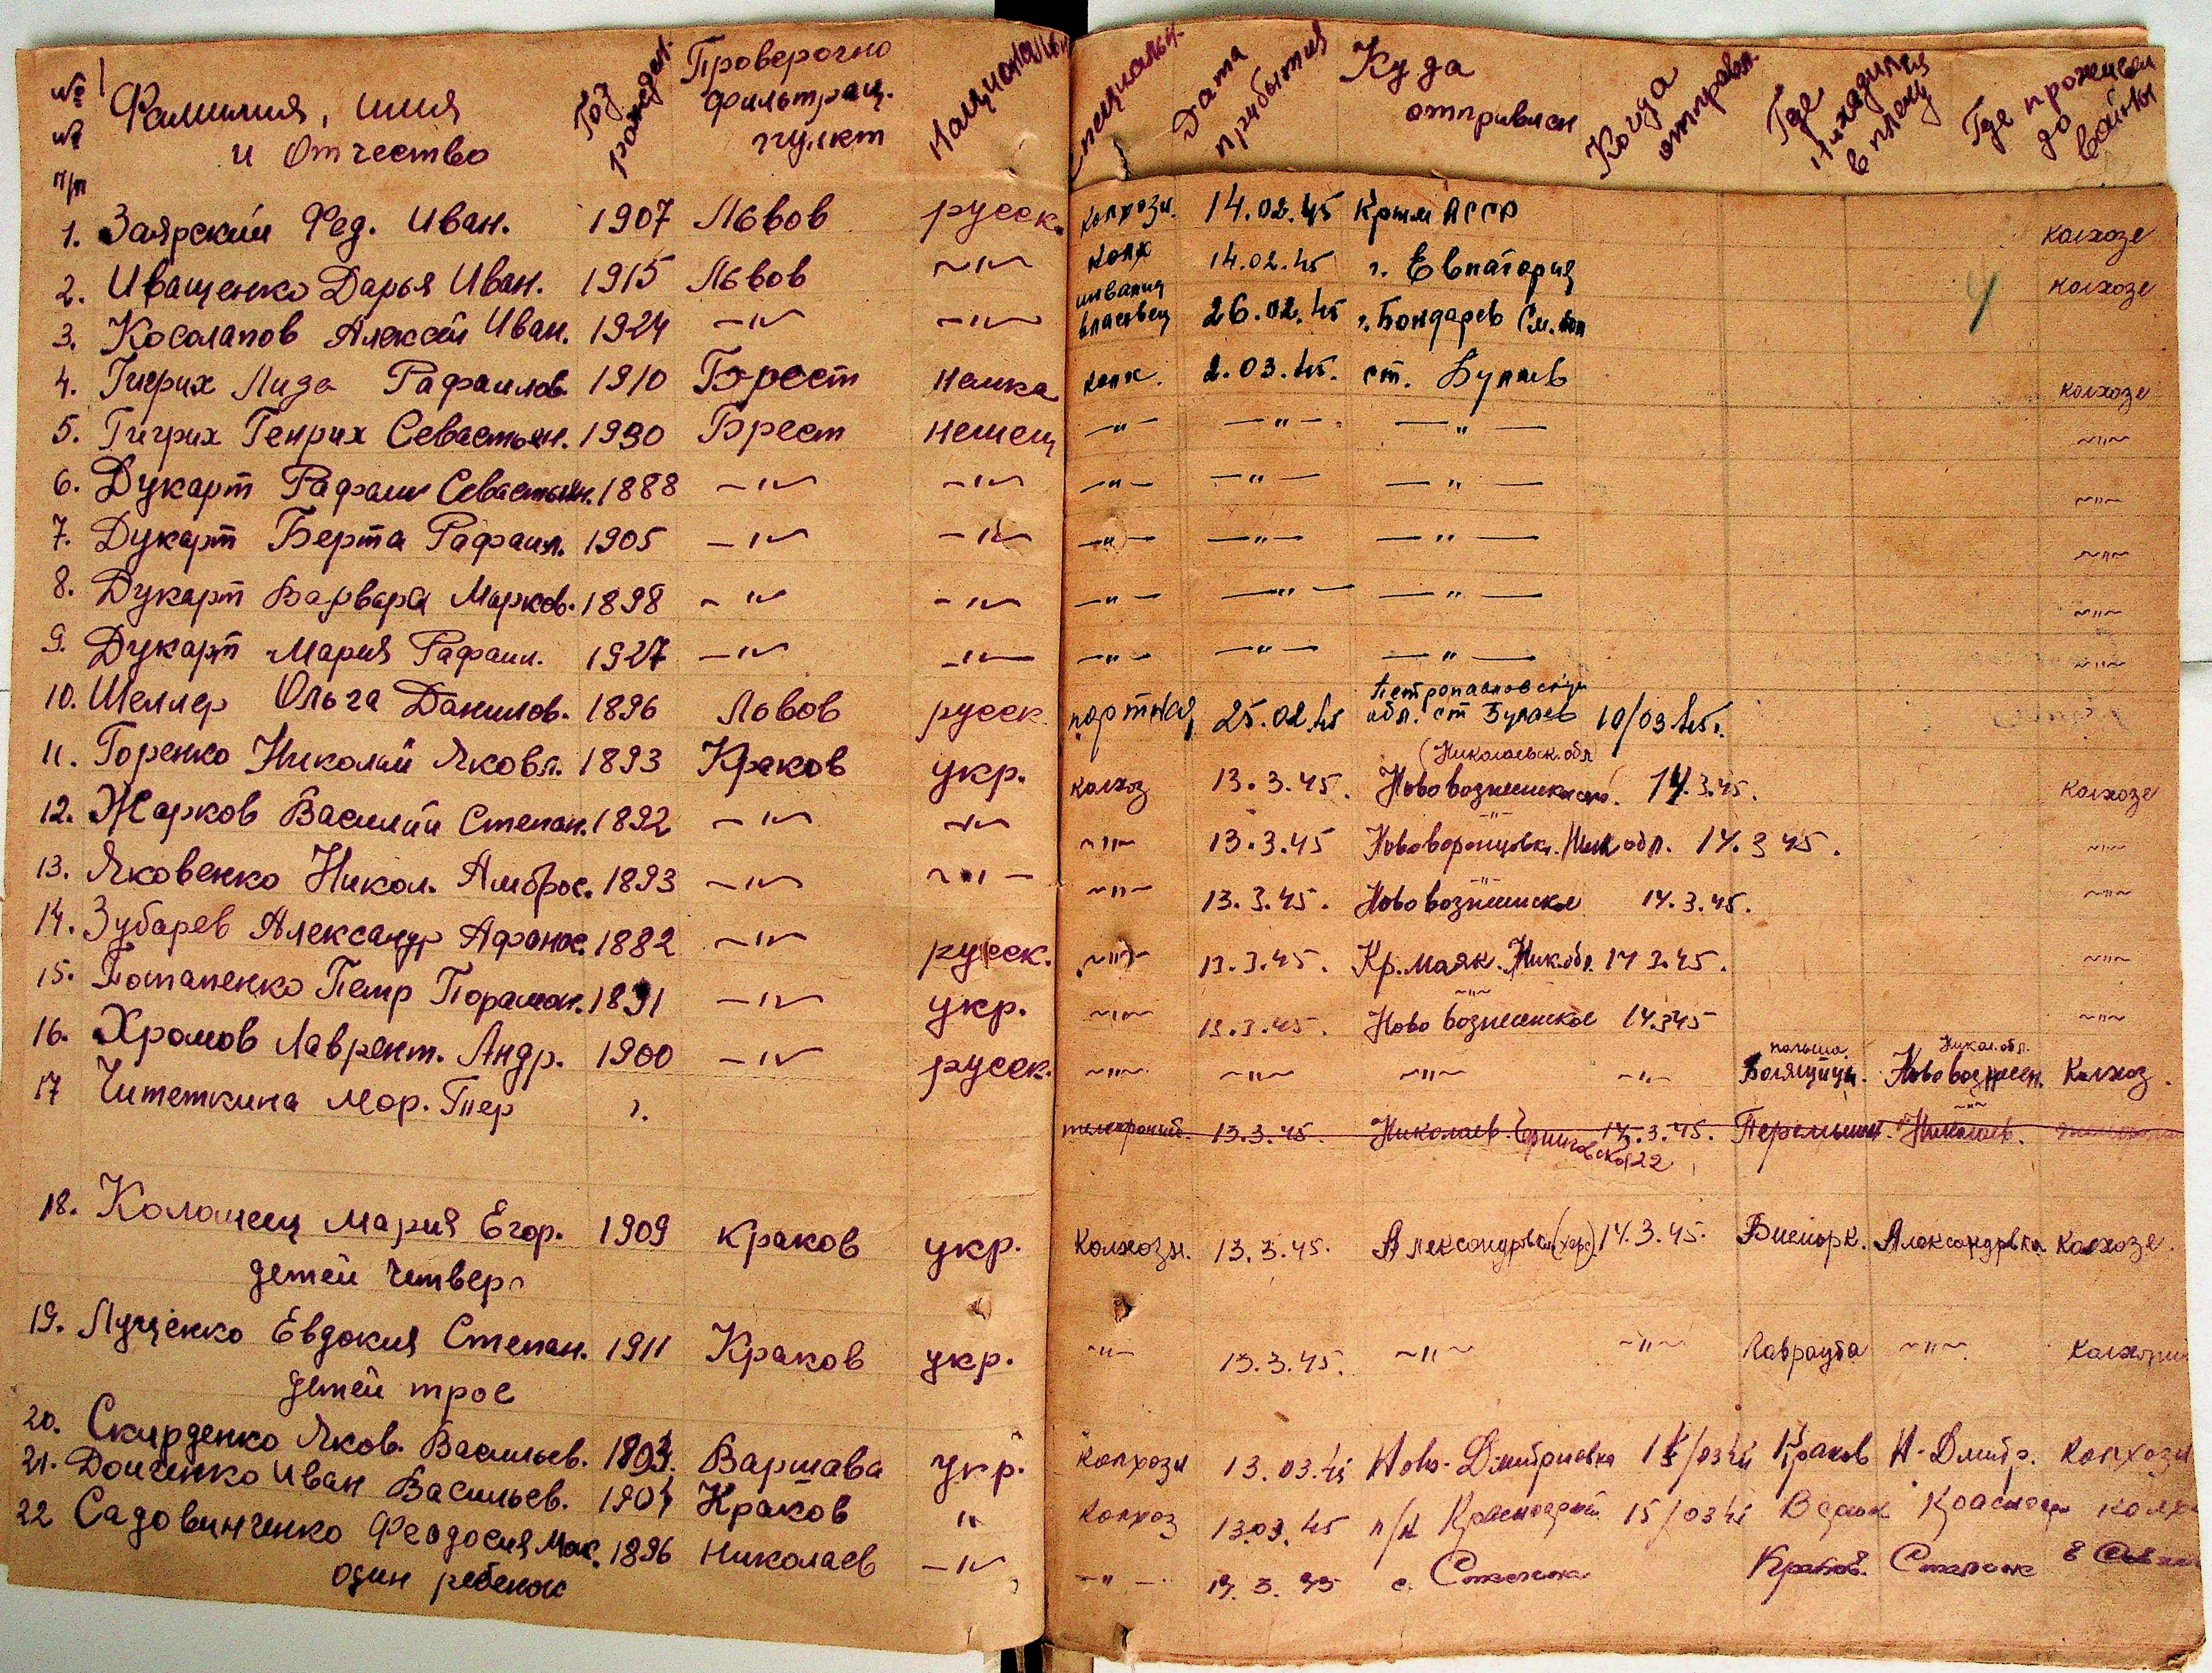 № № п/п Фамилия, имя и Отчество Год рожден. Проверочно фильтрац. пункт Национальн
Специальн. Дата прибытия Куда отправлен Когда отправл. Где находился в плену Где проживал до войны
1. Заярский Фед. Иван. 1907 Львов русск. колхозн. 14.02.45 Крым АССР колхозе
2. Иващенко Дарья Иван. 1915 Львов ~"~ колх 14.02.45 г. Евпатория колхозе
3. Косолапов Алексей Иван. 1924 —"— —"— инвалид власовец 26.02.45 г. Бондарев См. обл
4. Гигрих Лида Рафаилов 1910 Брест немка колх. 2.03.45. ст. Булаев колхозе
5. Гигрих Генрих Севастьян. 1930 Брест немец —"— —"— —"— ~"~
6. Дукарт Рафаил Севастьян. 1888 —"— —"— —"— —"— —"— ~"~
7. Дукарт Берта Рафаил. 1905 —"— —"— —"— —"— —"— ~"~
8. Дукарт Варвара Марков. 1898 —"— —"— —"— —"— —"— ~"~
9. Дукарт Мария Рафаил. 1927 —"— —"— —"— —"— —"— ~"~
10. Шеллер Ольга Данилов. 1896 Львов русск портная 25.02.45 Петропавловская обл. ст Булаев 10/03.45г.
11. Горенко Николай Яковл. 1893 Краков укр. колхоз 13.3.45. (Николаевск. обл) 14.3.45. колхозе
12. Жарков Василий Степан. 1892 —"— —"— ~"~ 13.3.45 Нововоронцовка. Ник обл. 14.3 45. ~"~
13. Яковенко Никол. Амброс. 1893 —"— ~"— ~"~ 13.3.45. Нововознесенское 14.3.45. ~"~
14. Зубарев Александр Афанас. 1882 —"— русск. ~"~ 13.3.45. Кр. маяк. Ник. обл. 14 3.45. ~"~
15. Потапенко Петр Парамон. 1891 —"— укр. ~"~ 13.3.45. Ново вознесенское 14.3 45 ~"~
16. Хромов Лаврент. Андр. 1900 —"— русск. ~"~ ~"~ ~"~ ~"~ польша Никол. обл. Нововознесен. Колхоз.
17 Читеткина Мар. Тер г. 13.3.45. Николаев. 22 14.3.45. Перемышл. Николаев.
18. Коломеец Мария Егор. 1909 Краков укр. Колхозн. 13.3.45. Александровка (хер.) 14.3.45. Александровка колхозе.
детей четверо
19. Луценко Евдокия Степан. 1911 Краков укр. ~"~ 13.3.45. ~"~ ~"~ ~"~
детей трое
20. Скирденко Яков. Васильев. 1893. Варшава укр. колхозн 13.03.45 Ново-Дмитриевка Краков Н-Дмитр. колхозн
21. Донченко Иван Васильев. 1904 Краков " колхоз 13.03.45 15/03 45
22 Садовниченко Феодосия Мак. 1896 Николаев —"— —"— 14.3.45 с. Краков.
один ребенок